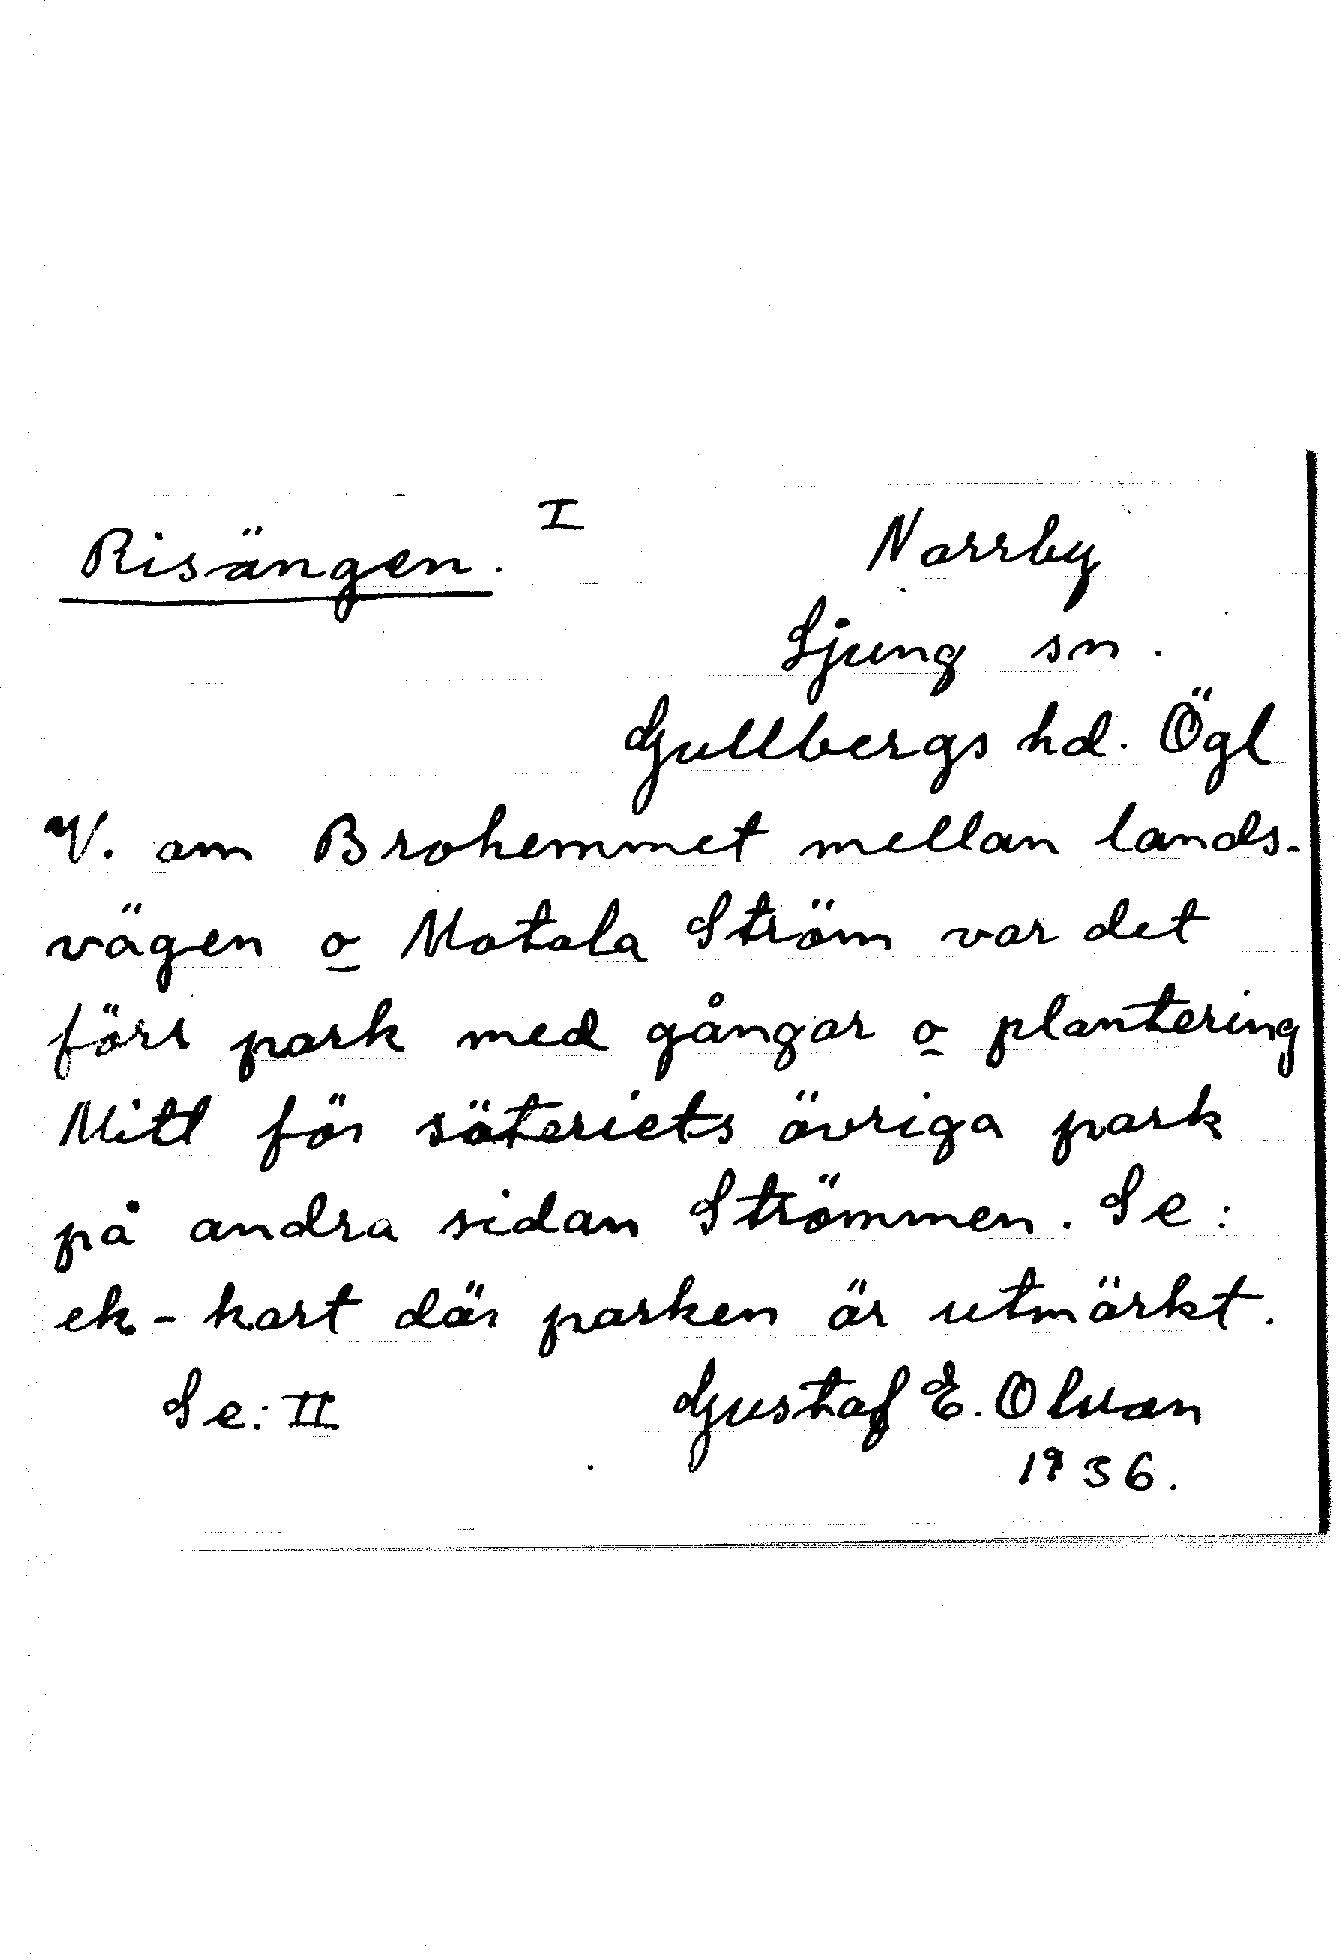 Risängen. I
Norrby
Ljung sn.
Gullbergs hd. Ögl
V. om Brohemmet mellan lands-
vägen o Motala Ström var det
förr park med gångar o plantering
Mitt för säteriets övriga park
på andra sidan Strömmen. Se:
ek-kart där parken är utmärkt.
Se: II
Gustaf E. Olvan
1936.